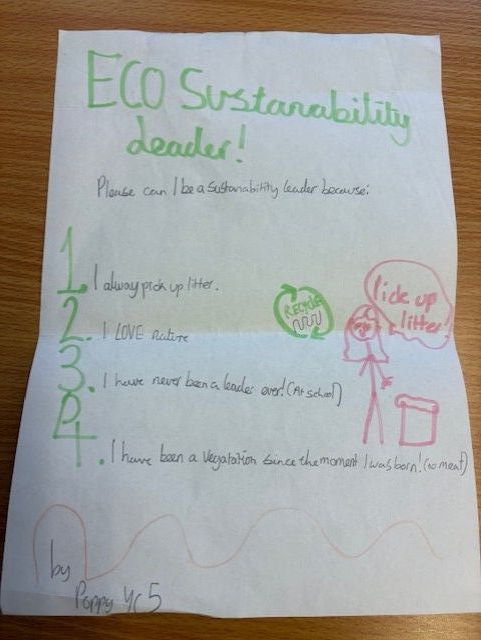 ECO Sustanability
Leader!
Please can I be a sustanability leader because:
1. I alway pick up litter.
RECYCLE
Pick up
litter
2. I LOVE nature
3. I have never been a leader ever! (At school)
4. I have been a vegatation since the moment I was born! (no meat)
by
Poppy Yc5